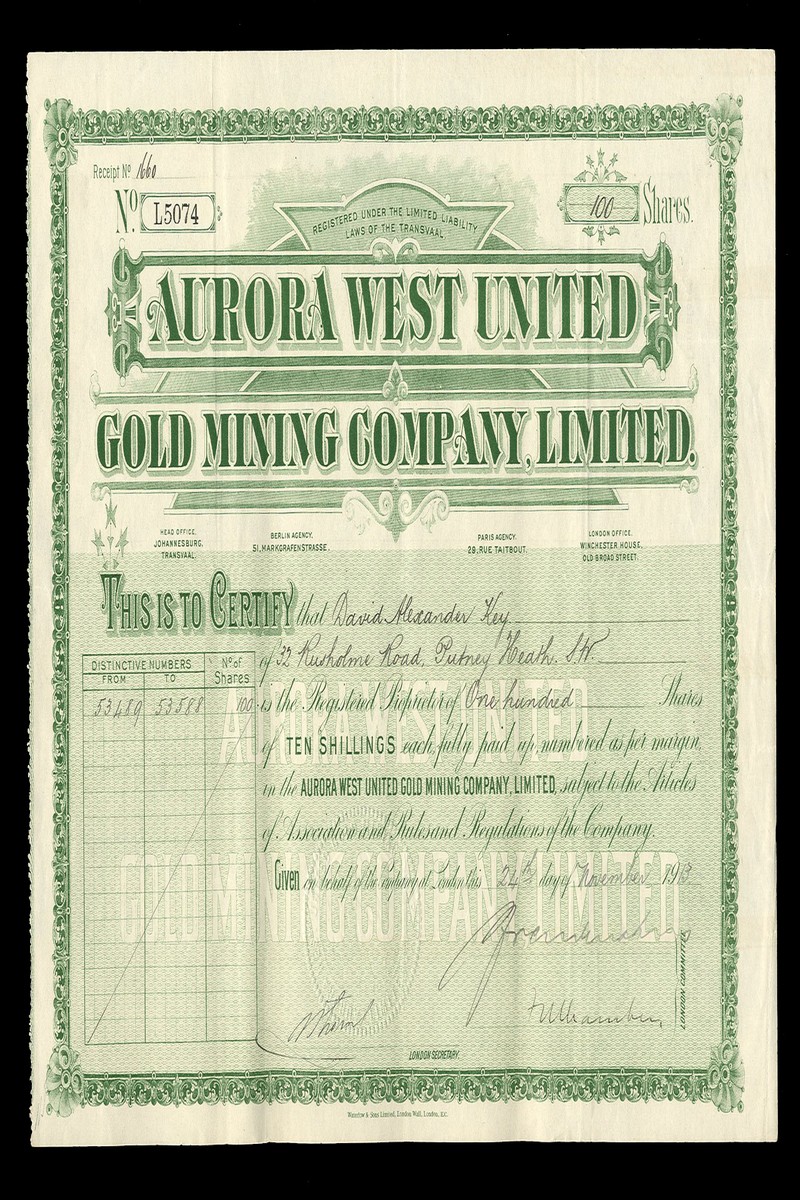 Receipt Nº 1660
Nº L5074
100 Shares.
REGISTERED UNDER THE LIMITED LIABILITY
LAWS OF THE TRANSVAAL
AURORA WEST UNITED
GOLD MINING COMPANY, LIMITED.
HEAD OFFICE,
JOHANNESBURG,
TRANSVAAL.
BERLIN AGENCY.
51, MARKGRAFENSTRASSE.
PARIS AGENCY.
29, RUE TAITBOUT.
LONDON OFFICE.
WINCHESTER HOUSE,
OLD BROAD STREET.
THIS IS TO CERTIFY that David Alexander Key
of 32 Rusholme Road, Putney Heath. S.W.
is the Registered Proprietor of One hundred Shares
of TEN SHILLINGS each, fully paid up, numbered as per margin,
in the AURORA WEST UNITED GOLD MINING COMPANY, LIMITED, subject to the Articles
of Association and Rules and Regulations of the Company.
Given on behalf of the Company at London this 24th day of November 1913
DISTINCTIVE NUMBERS
FROM TO
Nº of Shares
53489 53588 100
AURORA WEST UNITED
GOLD MINING COMPANY LIMITED
LONDON COMMITTEE
LONDON SECRETARY.
Waterlow & Sons Limited, London Wall, London, E.C.